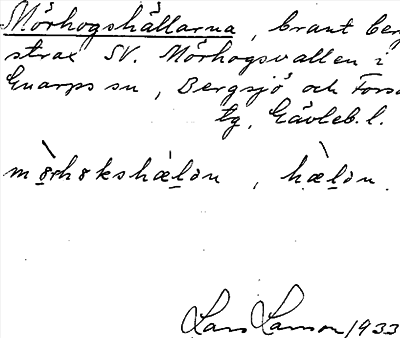 Mörhogshällarna, brant berg
strax SV. Mörhogsvallen i
Gnarps sn, Bergsjö och Forsa
tg, Gävleb. l.
mörhokshælọn, hælọn.
Lars Larson 1933